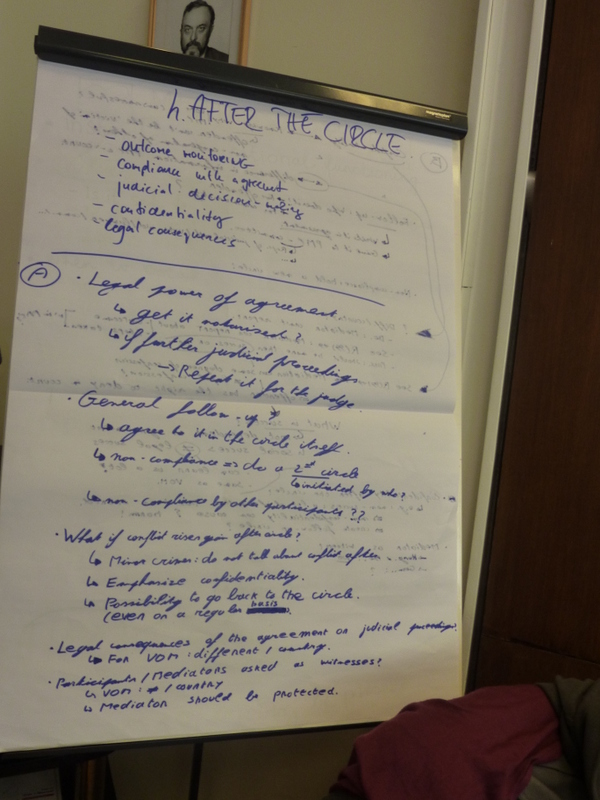 h. AFTER THE CIRCLE
- outcome monitoring
- compliance with agreement
- judicial decision-making
- confidentiality
- legal consequences
A
• Legal power of agreement.
↳ get it notarised?
↳ if further judicial proceedings
→ Repeat it for the judge.
• General follow-up
↳ agree to it in the circle itself.
↳ non-compliance => do a 2nd circle
↳ initiated by who?
↳ non-compliance by other participants ??
• What if conflict rises again after circle?
↳ Minor crimes: do not talk about conflict after
↳ Emphasize confidentiality.
↳ Possibility to go back to the circle.
(even on a regular basis).
• Legal consequences of the agreement on judicial proceedings?
↳ For VOM: different / country.
• Participants / Mediators asked as witnesses?
↳ VOM: ≠ / country
↳ Mediator should be protected.